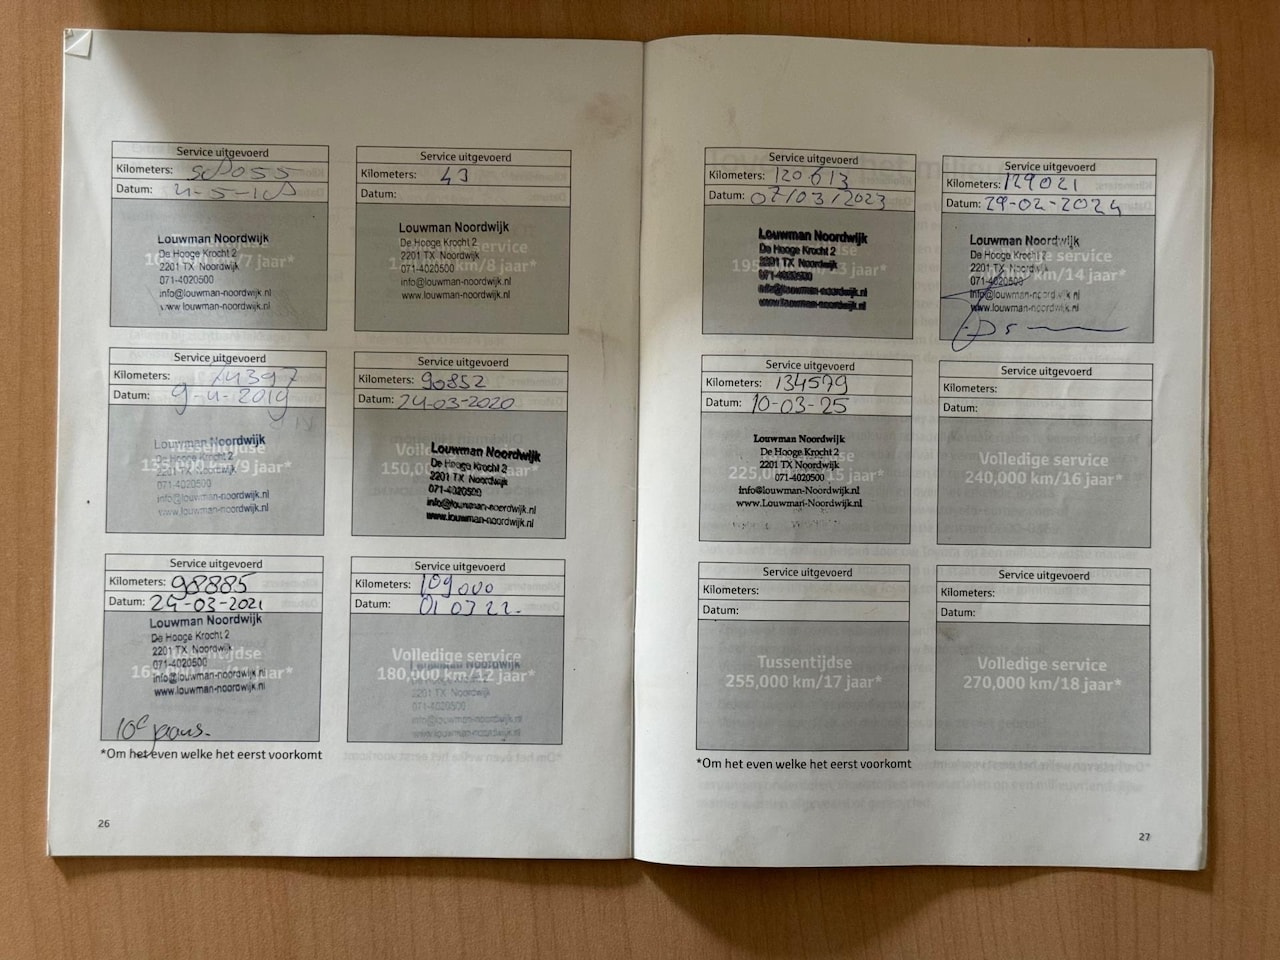 Service uitgevoerd
Kilometers:
Datum:
Louwman Noordwijk
De Hooge Krocht 2
2201 TX Noordwijk
071-4020500
info@louwman-noordwijk.nl
www.louwman-noordwijk.nl
Service uitgevoerd
Kilometers: 43
Datum:
Louwman Noordwijk
De Hooge Krocht 2
2201 TX Noordwijk
071-4020500
info@louwman-noordwijk.nl
www.louwman-noordwijk.nl
Service uitgevoerd
Kilometers: 74397
Datum: 9-4-2019
Tussentijdse
135,000 km/9 jaar*
Louwman Noordwijk
De Hooge Krocht 2
2201 TX Noordwijk
071-4020500
info@louwman-noordwijk.nl
www.louwman-noordwijk.nl
Service uitgevoerd
Kilometers: 90852
Datum: 24-03-2020
Louwman Noordwijk
De Hooge Krocht 2
2201 TX Noordwijk
071-4020500
info@louwman-noordwijk.nl
www.louwman-noordwijk.nl
Service uitgevoerd
Kilometers: 98885
Datum: 24-03-2021
Louwman Noordwijk
De Hooge Krocht 2
2201 TX Noordwijk
071-4020500
info@louwman-noordwijk.nl
www.louwman-noordwijk.nl
Service uitgevoerd
Kilometers: 109000
Datum: 01 03 22
Volledige service
180,000 km/12 jaar*
Louwman Noordwijk
2201 TX Noordwijk
071-4020500
info@louwman-noordwijk.nl
www.louwman-noordwijk.nl
*Om het even welke het eerst voorkomt
26
Service uitgevoerd
Kilometers: 120613
Datum: 07/03/2023
Louwman Noordwijk
De Hooge Krocht 2
2201 TX Noordwijk
071-4020500
info@louwman-noordwijk.nl
www.louwman-noordwijk.nl
Service uitgevoerd
Kilometers: 129021
Datum: 29-02-2024
Louwman Noordwijk
De Hooge Krocht 2
2201 TX Noordwijk
071-4020500
info@louwman-noordwijk.nl
www.louwman-noordwijk.nl
Service uitgevoerd
Kilometers: 134579
Datum: 10-03-25
Louwman Noordwijk
De Hooge Krocht 2
2201 TX Noordwijk
071-4020500
info@louwman-Noordwijk.nl
www.Louwman-Noordwijk.nl
Service uitgevoerd
Kilometers:
Datum:
Volledige service
240,000 km/16 jaar*
Service uitgevoerd
Kilometers:
Datum:
Tussentijdse
255,000 km/17 jaar*
Service uitgevoerd
Kilometers:
Datum:
Volledige service
270,000 km/18 jaar*
*Om het even welke het eerst voorkomt
27